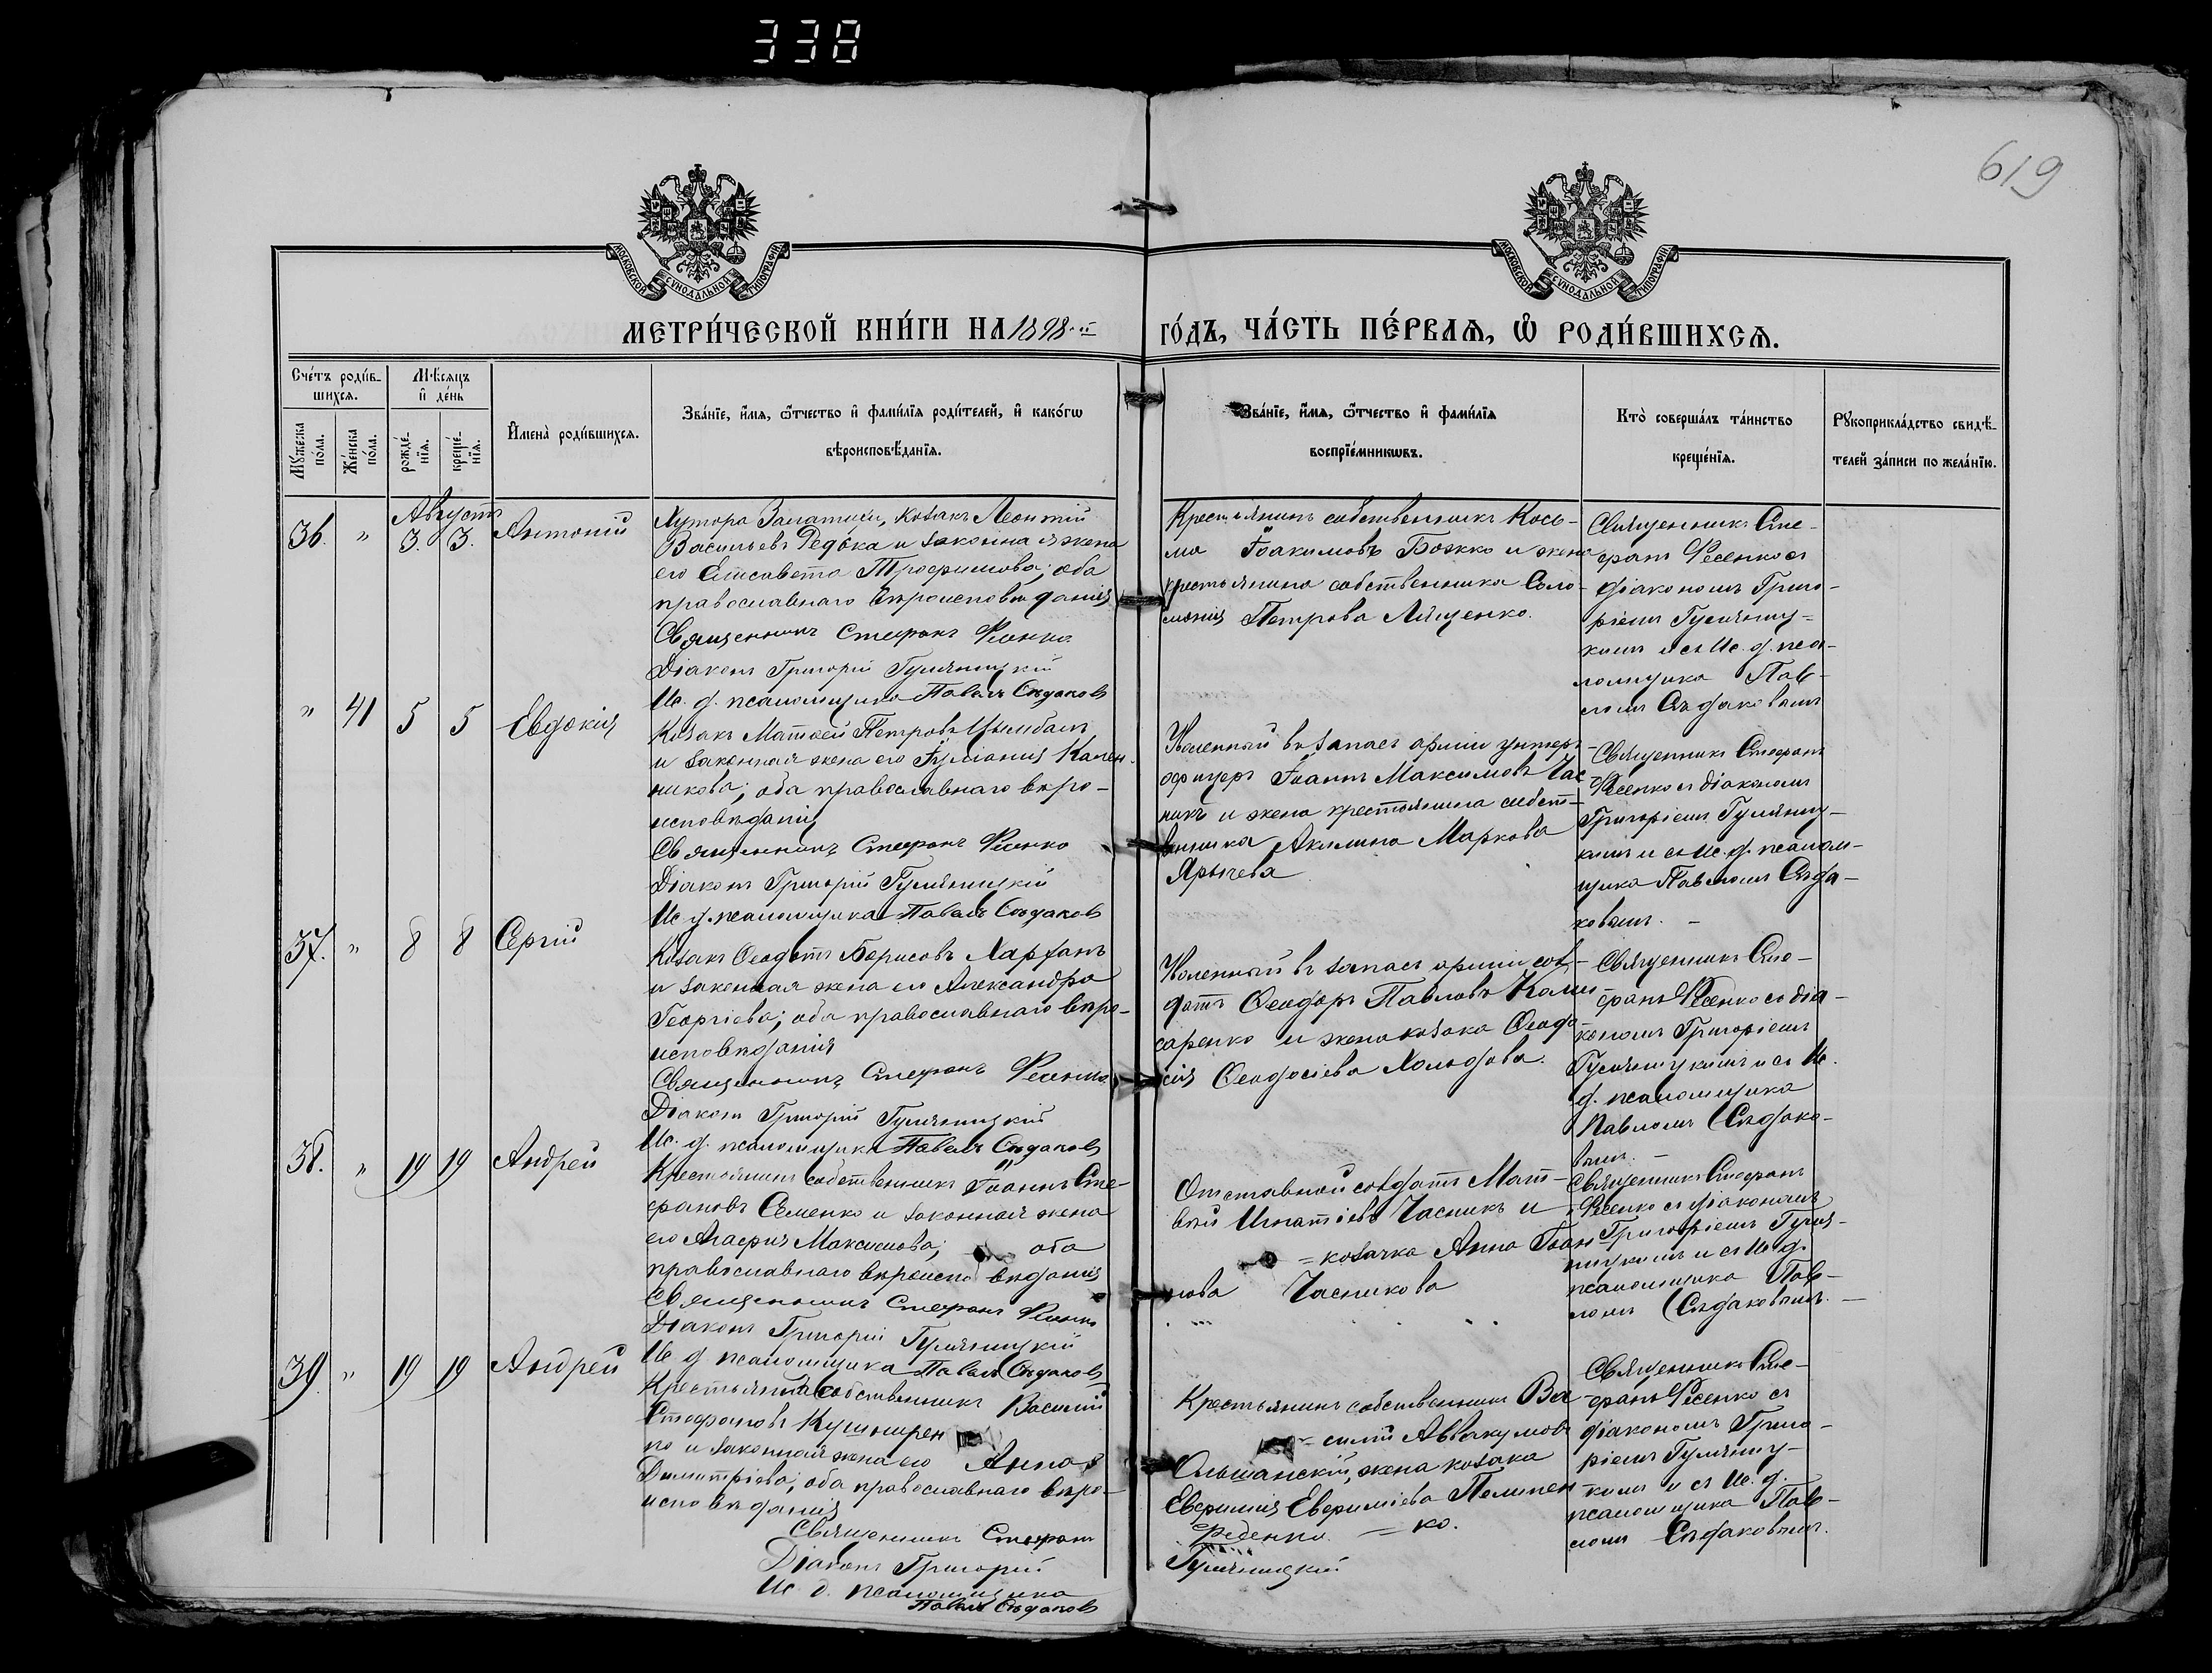 338
619
МОСКОВСКОЙ СѴНОДАЛЬНОЙ ТИПОГРАФІИ
МОСКОВСКОЙ СѴНОДАЛЬНОЙ ТИПОГРАФІИ
МЕТРИ́ЧЕСКОЙ КНИ́ГИ НА 1898.й ГО́ДЪ, ЧА́СТЬ ПЕ́РВАѦ, Ѡ҆ РОДИ́ВШИХСѦ.
Сче́тъ роди́в-
шихсѧ.
Мꙋ́жеска по́ла.
Же́нска по́ла.
Мѣ́сяцъ
и҆ де́нь
рожде́-
нїѧ.
креще́-
нїѧ.
И҆мена̀ роди́вшихсѧ.
Зва́нїе, и҆́мѧ, ѻ҆́тчество и҆ фами́лїѧ роди́телей, и҆ како́гѡ
вѣроисповѣ́данїѧ.
Зва́нїе, и҆́мѧ, ѻ҆́тчество и҆ фами́лїѧ
воспрїе́мникѡвъ.
Кто̀ соверша́лъ та́инство
креще́нїѧ.
Рꙋкоприкла́дство свидѣ́-
телей за́писи по жела́нїю.
Августъ
36. " 3. 3. Антоній
Хутора козакъ Леонтій
Васильевъ Редька и законная жена
его Елисавета Трофимова; оба
православнаго вѣроисповѣданія
Священникъ Стефанъ Фесенко
Діаконъ Григорій Гуляницкій
Ис. д. псаломщика Павелъ Сѣдаковъ
Крестьянинъ собственникъ Кось-
ма Іоакимовъ Божко и жена
крестьянина собственника Соло-
монія Петрова Лященко.
Священникъ Сте-
фанъ Фесенко съ
діакономъ Григо-
ріемъ Гуляниц-
кимъ и съ Ис. д. пса-
ломщика Пав-
ломъ Сѣдаковымъ
" 41 5 5 Евдокія
Козакъ Матѳей Петровъ Цымбалъ
и законная жена его Іуліанія Кален-
никова; оба православнаго вѣро-
исповѣданія
Священникъ Стефанъ Фесенко
Діаконъ Григорій Гуляницкій
Ис. д. псаломщика Павелъ Сѣдаковъ
Уволенный въ запасъ арміи унтеръ-
офицеръ Іоаннъ Максимовъ Час-
никъ и жена крестьянина собст-
венника Акилина Маркова
Ярычева
Священникъ Стефанъ
Фесенко съ діакономъ
Григоріемъ Гуляниц-
кимъ и съ Ис. д. псалом-
щика Павломъ Сѣда-
ковымъ. –
37. " 8 8 Сергій
Козакъ Ѳеодотъ Борисовъ Харханъ
и законная жена его Александра
Георгіева; оба православнаго вѣро-
исповѣданія
Священникъ Стефанъ Фесенко
Діаконъ Григорій Гуляницкій
Ис. д. псаломщика Павелъ Сѣдаковъ
Уволенный въ запасъ арміи сол-
датъ Ѳеодоръ Павловъ Коми-
саренко и жена козака Ѳеодо-
сія Ѳеодосіева
Священникъ Сте-
фанъ Фесенко съ діа-
кономъ Григоріемъ
Гуляницкимъ и съ Ис.
д. псаломщика
Павломъ Сѣдако-
вымъ. –
38. " 19 19 Андрей
Крестьянинъ собственникъ Іоаннъ Сте-
фановъ Семенко и законная жена
его Агафія Максимова; оба
православнаго вѣроиспо вѣданія
Священникъ Стефанъ Фесенко
Діаконъ Григорій Гуляницкій
Ис. д. псаломщика Павелъ Сѣдаковъ
Отставной солдатъ Мат-
вѣй Игнатіевъ Часникъ и
= козачка Анна Іоан-
нова Часникова
Священникъ Стефанъ
Фесенко съ діакономъ
Григоріемъ Гуля-
ницкимъ и съ Ис. д.
псаломщика Пав-
ломъ Сѣдаковымъ. –
39. " 19 19 Андрей
Крестьянинъ собственникъ Василій
Стефановъ Кушнирен
ко и законная жена его Анна
Димитріева; оба православнаго вѣро-
исповѣданія
Священникъ Стефанъ
Діаконъ Григорій
Ис. д. псаломщика
Павелъ Сѣдаковъ
Крестьянинъ собственникъ Ва-
= силій Аввакумовъ
Ольшанскій, жена козака
Евфимія Евфиміева Пелипен
= ко.
Феценко
Гуляницкій
Священникъ Сте-
фанъ Фесенко съ
діакономъ Григо-
ріемъ Гуляниц-
кимъ и съ Ис. д.
псаломщика Пав-
ломъ Сѣдаковымъ.